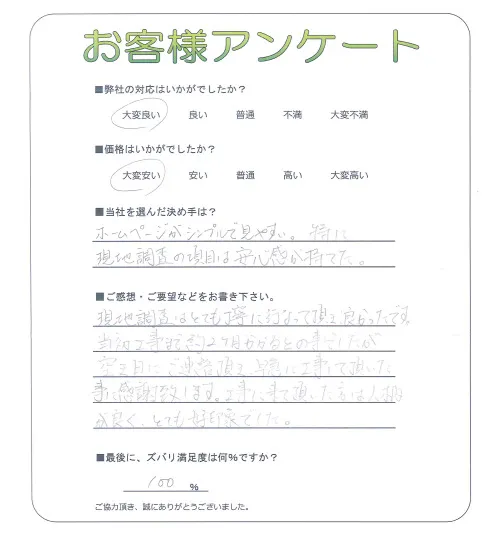 お客様アンケート
■弊社の対応はいかがでしたか？
大変良い 良い 普通 不満 大変不満
■価格はいかがでしたか？
大変安い 安い 普通 高い 大変高い
■当社を選んだ決め手は？
ホームページがシンプルで見やすい。特に
現地調査の項目は安心感が持てた。
■ご感想・ご要望などをお書き下さい。
現地調査はとても丁寧に行なって頂き良かったです
当初工事まで約2ヶ月かかるとの事でしたが
日にご連絡頂き 早急に工事して頂いた
事に感謝致します。工事に来て頂いた方は人柄
が良く、とても好印象でした。
■最後に、ズバリ満足度は何%ですか？
100 %
ご協力頂き、誠にありがとうございました。